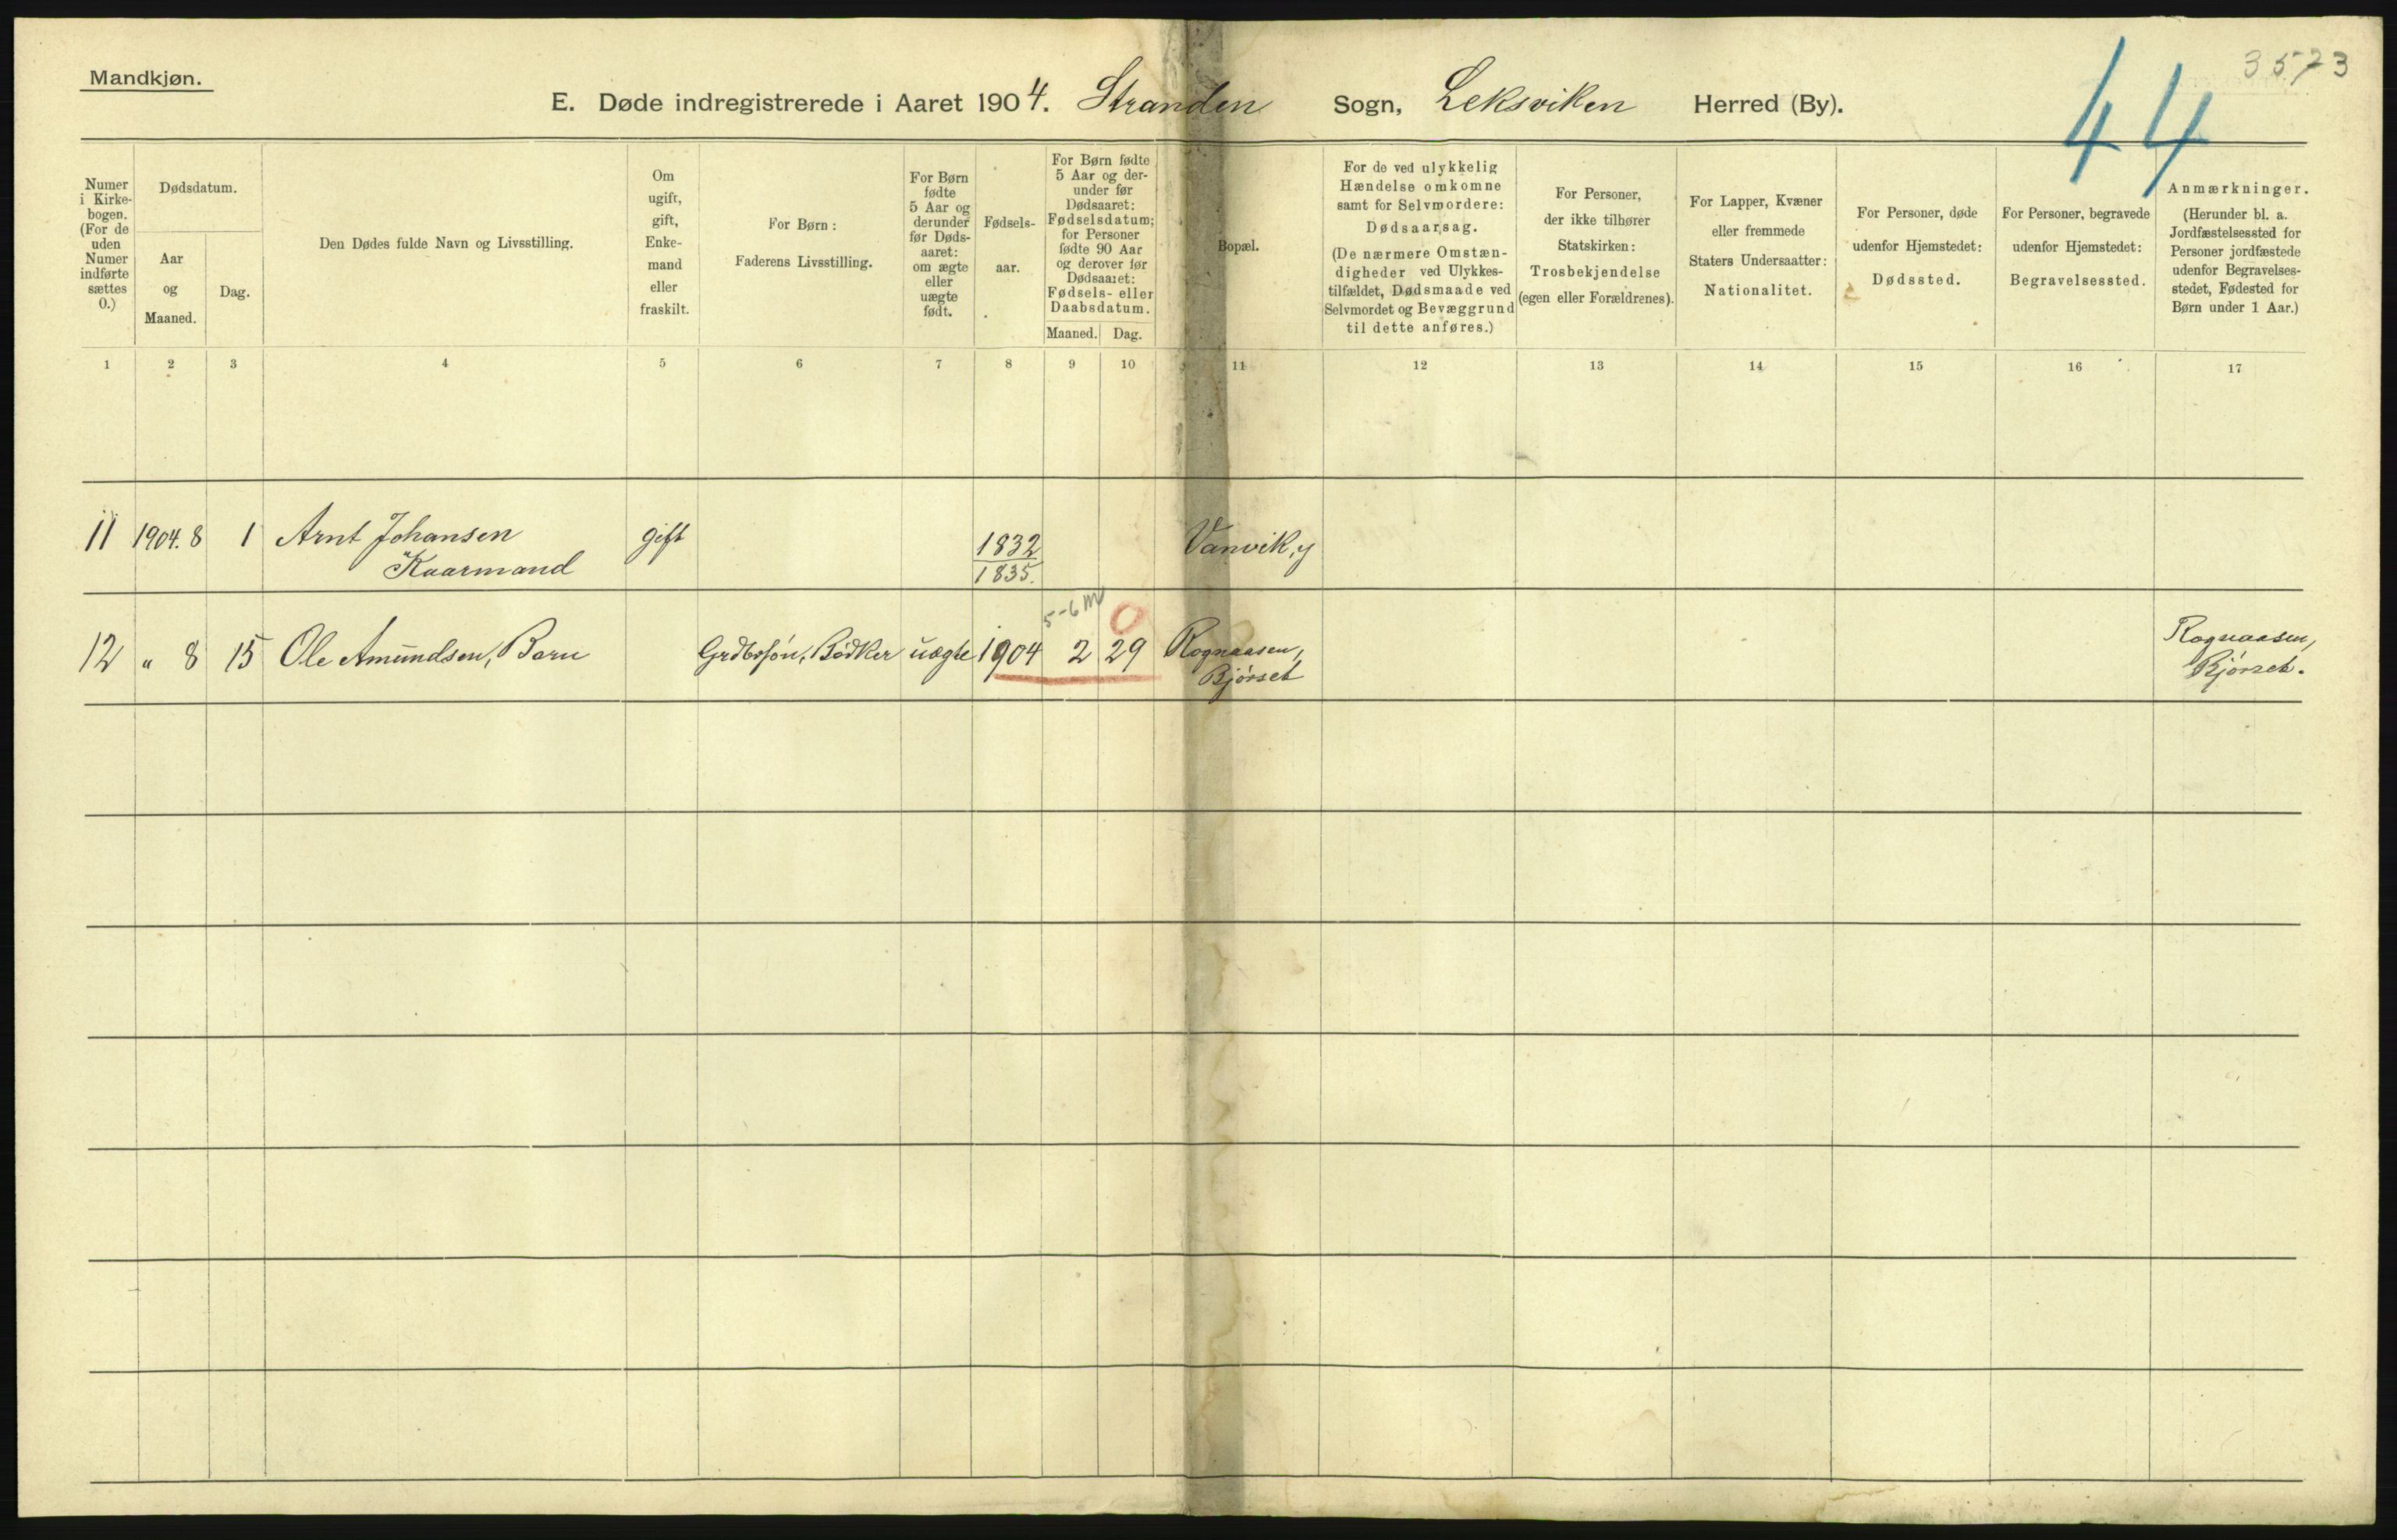 Mandkjøn.
3573
44
E. Døde indregistrerede i Aaret 1904. Stranden Sogn, Leksviken Herred (By).
Numer i Kirke-bogen. (For de uden Numer indførte sættes 0.)
Dødsdatum.
Aar og Maaned.
Dag.
Den Dødes fulde Navn og Livsstilling.
Om ugift, gift, Enke-mand eller fraskilt.
For Børn: Faderens Livsstilling.
For Børn fødte 5 Aar og derunder før Døds-aaret: om ægte eller uægte født.
Fødsels-aar.
For Børn fødte 5 Aar og der-under før Dødsaaret: Fødselsdatum; for Personer fødte 90 Aar og derover før Dødsaaret: Fødsels- eller Daabsdatum.
Maaned. Dag.
Bopæl.
For de ved ulykkelig Hændelse omkomne samt for Selvmordere: Dødsaarsag. (De nærmere Omstæn-digheder ved Ulykkes-tilfældet, Dødsmaade ved Selvmordet og Bevæggrund til dette anføres.)
For Personer, der ikke tilhører Statskirken: Trosbekjendelse (egen eller Forældrenes).
For Lapper, Kvæner eller fremmede Staters Undersaatter: Nationalitet.
For Personer, døde udenfor Hjemstedet: Dødssted.
For Personer, begravede udenfor Hjemstedet: Begravelsessted.
Anmærkninger. (Herunder bl. a. Jordfæstelsessted for Personer jordfæstede udenfor Begravelses-stedet, Fødested for Børn under 1 Aar.)
1 2 3 4 5 6 7 8 9 10 11 12 13 14 15 16 17
11 1904. 8 1 Arnt Johansen gift 1832 Vanvik,
Kaarmand 1835.
5-6 m 0
12 " 8 15 Ole Amundsen, Barn Grdbrsøn, Bødker uægte 1904 2 29 Rognaasen, Rognaasen,
Bjørset Bjørset.